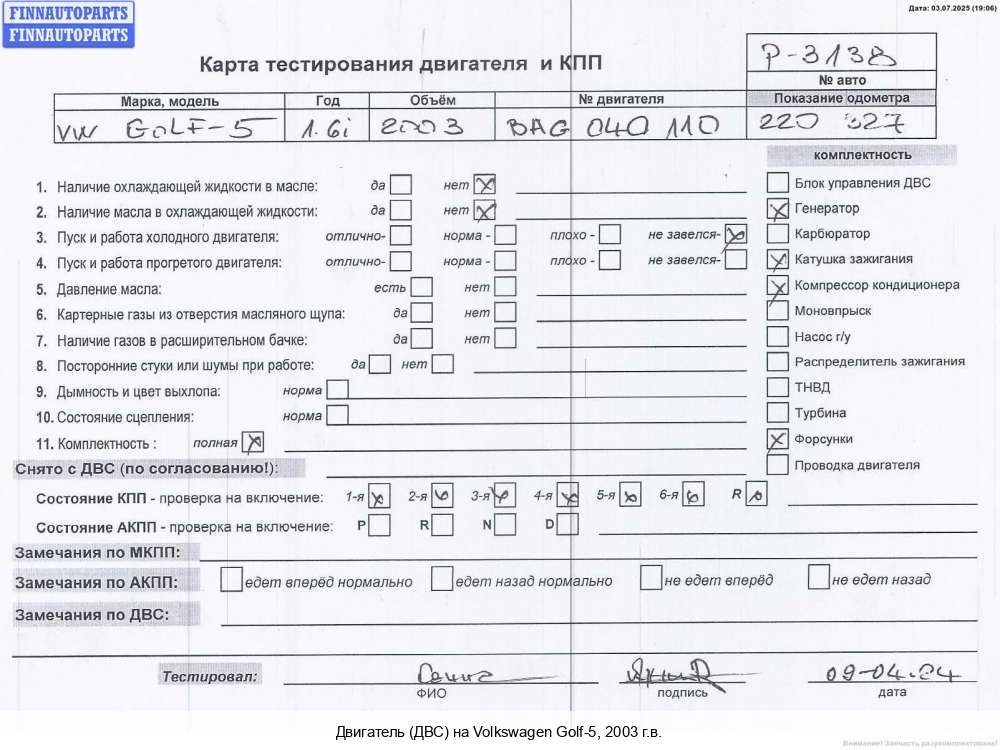 FINNAUTOPARTS
FINNAUTOPARTS
Дата: 03.07.2025 (19:06)
Карта тестирования двигателя и КПП
P-3138
№ авто
Марка, модель Год Объём № двигателя Показание одометра
VW GOLF-5 1.6i 2003 BAG 040 110 220 327
комплектность
1. Наличие охлаждающей жидкости в масле: да нет
Блок управления ДВС
2. Наличие масла в охлаждающей жидкости: да нет
Генератор
3. Пуск и работа холодного двигателя: отлично- норма - плохо - не завелся-
Карбюратор
4. Пуск и работа прогретого двигателя: отлично- норма - плохо - не завелся-
Катушка зажигания
5. Давление масла: есть нет
Компрессор кондиционера
6. Картерные газы из отверстия масляного щупа: да нет
Моновпрыск
7. Наличие газов в расширительном бачке: да нет
Насос г/у
8. Посторонние стуки или шумы при работе: да нет
Распределитель зажигания
9. Дымность и цвет выхлопа: норма
ТНВД
10. Состояние сцепления: норма
Турбина
11. Комплектность : полная
Форсунки
Снято с ДВС (по согласованию!):
Проводка двигателя
Состояние КПП - проверка на включение: 1-я 2-я 3-я 4-я 5-я 6-я R
Состояние АКПП - проверка на включение: P R N D
Замечания по МКПП:
Замечания по АКПП: едет вперёд нормально едет назад нормально не едет вперёд не едет назад
Замечания по ДВС:
Тестировал: 09-04-24
ФИО подпись дата
Двигатель (ДВС) на Volkswagen Golf-5, 2003 г.в.
Внимание! Запчасть разукомплектована!